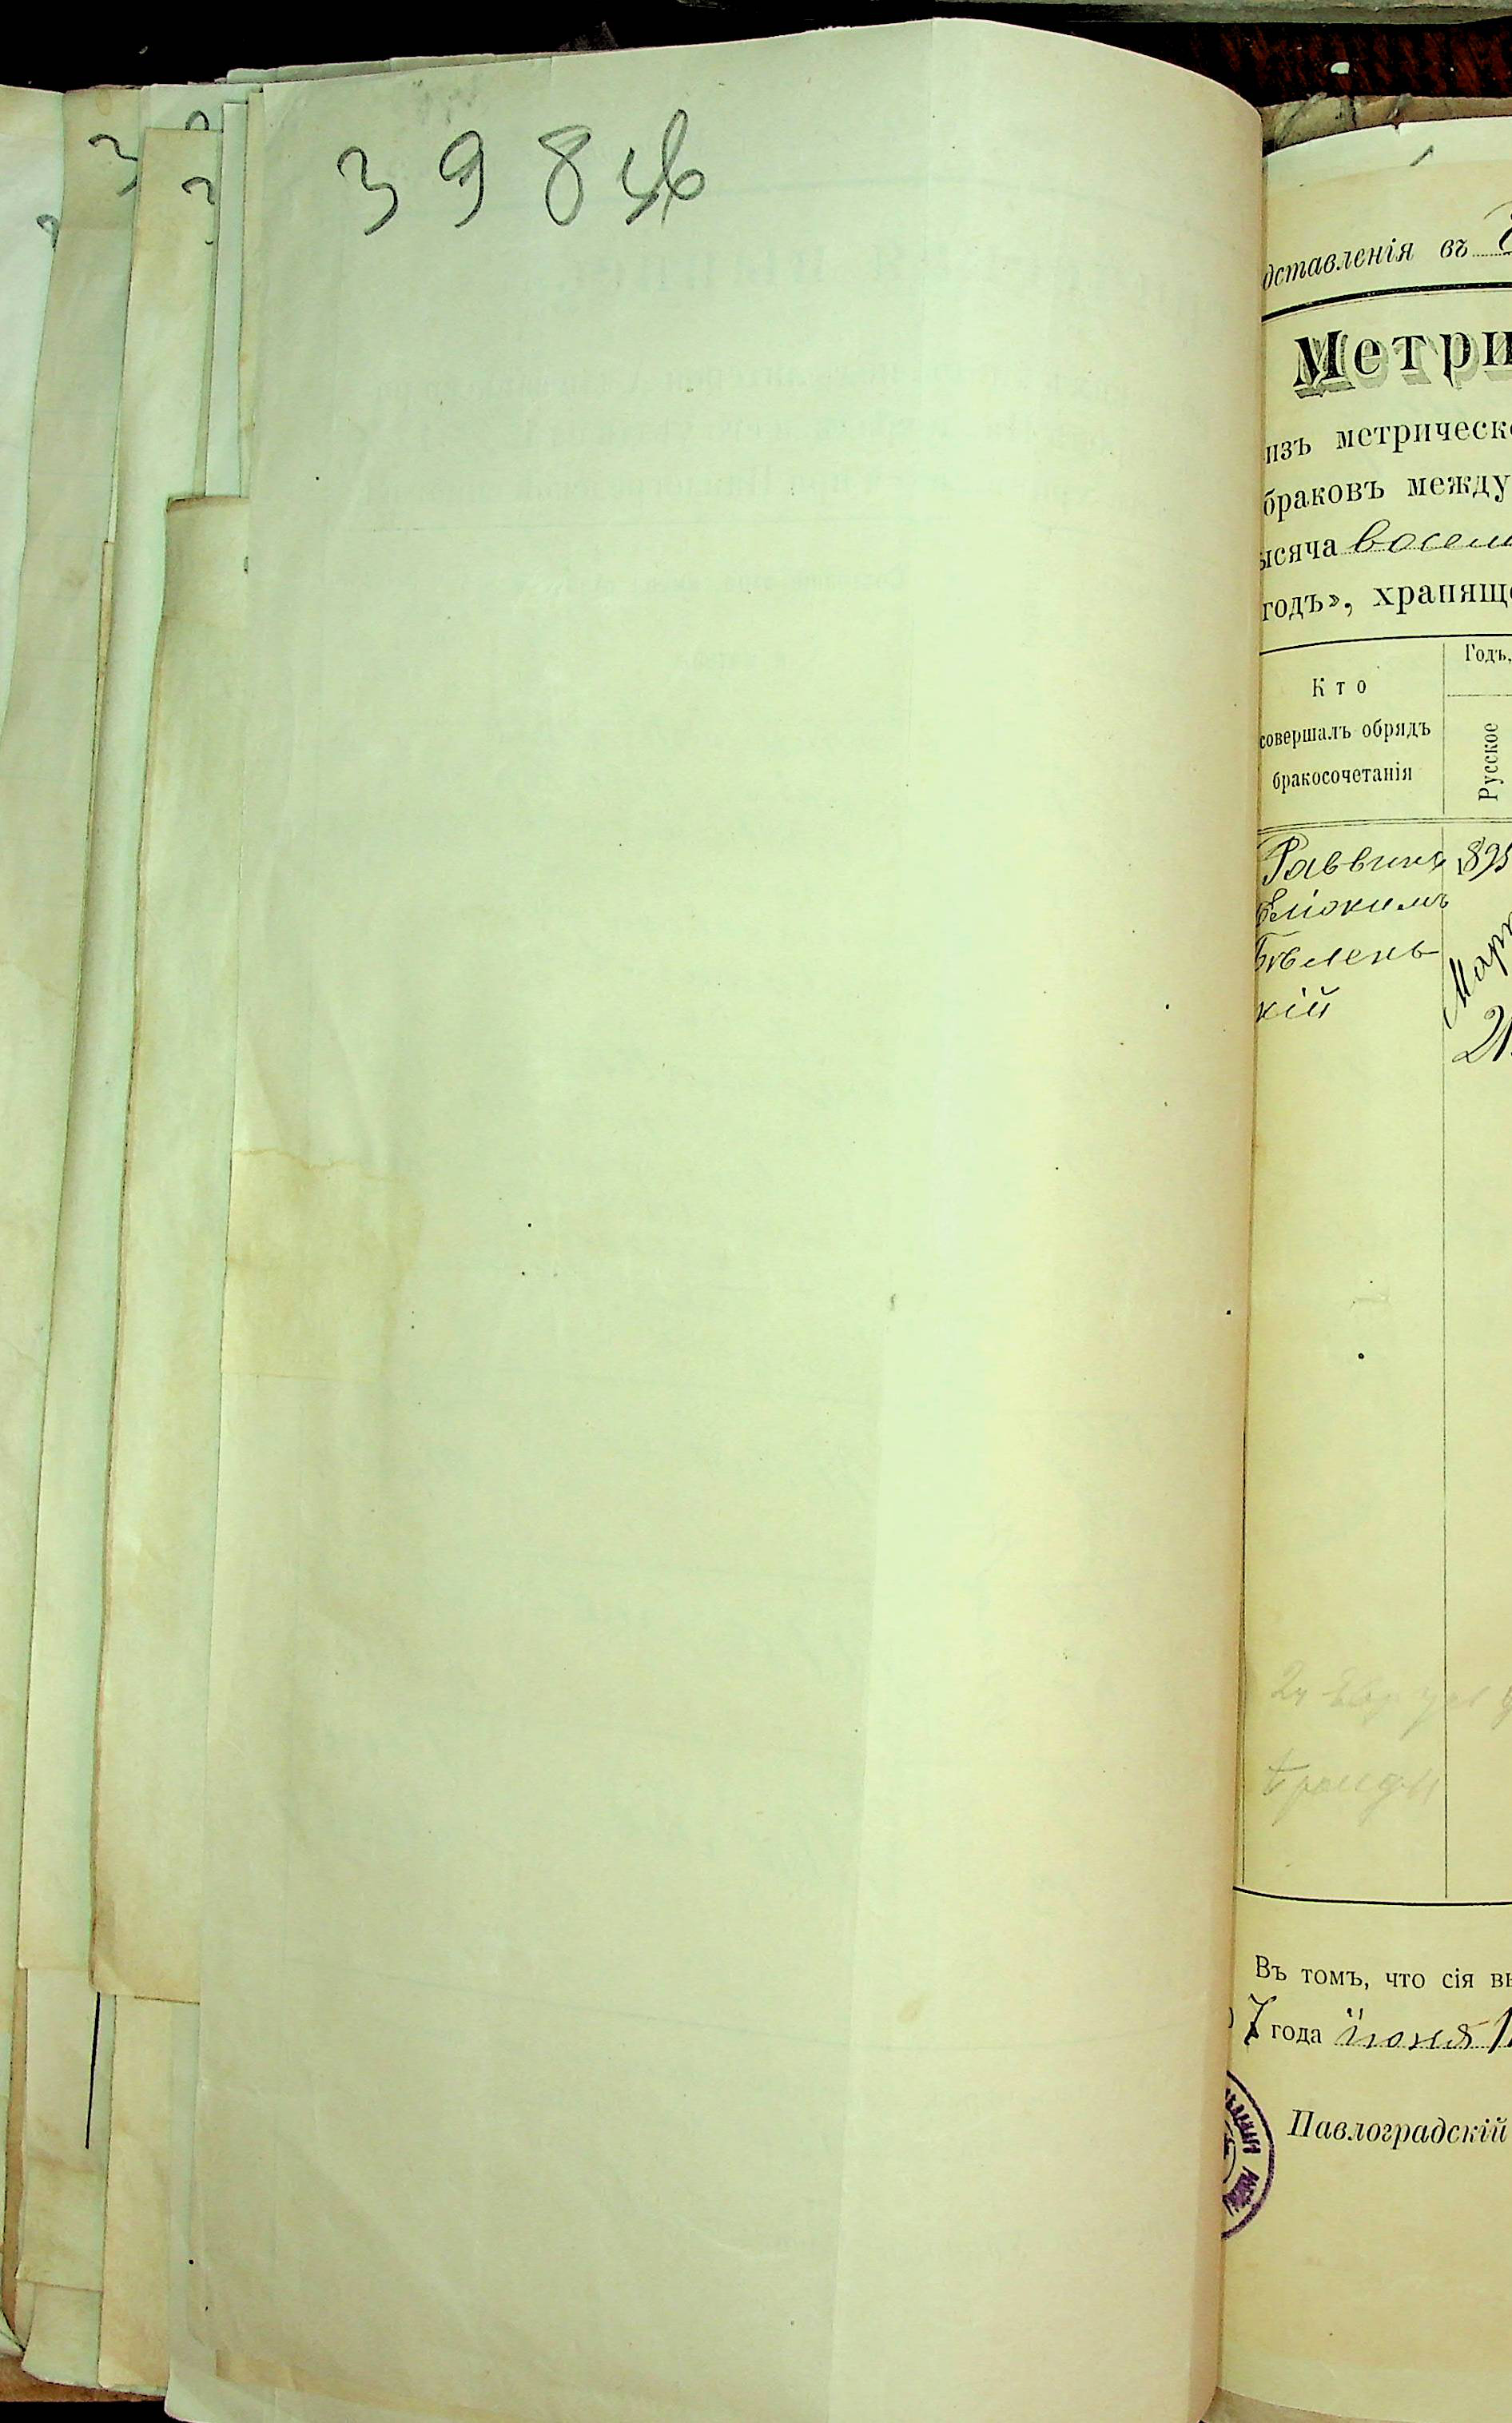 398 зв
дставленія въ
Метри
изъ метрическ
браковъ между
ысяча восем
годъ», хранящ
Кто
совершалъ обрядъ
бракосочетанія
Годъ,
Русское
Раввинъ
Еліокимъ
Бѣлень-
кій
1895
Март
21
Въ томъ, что сія вы
7 года іюня 1
Павлоградскій